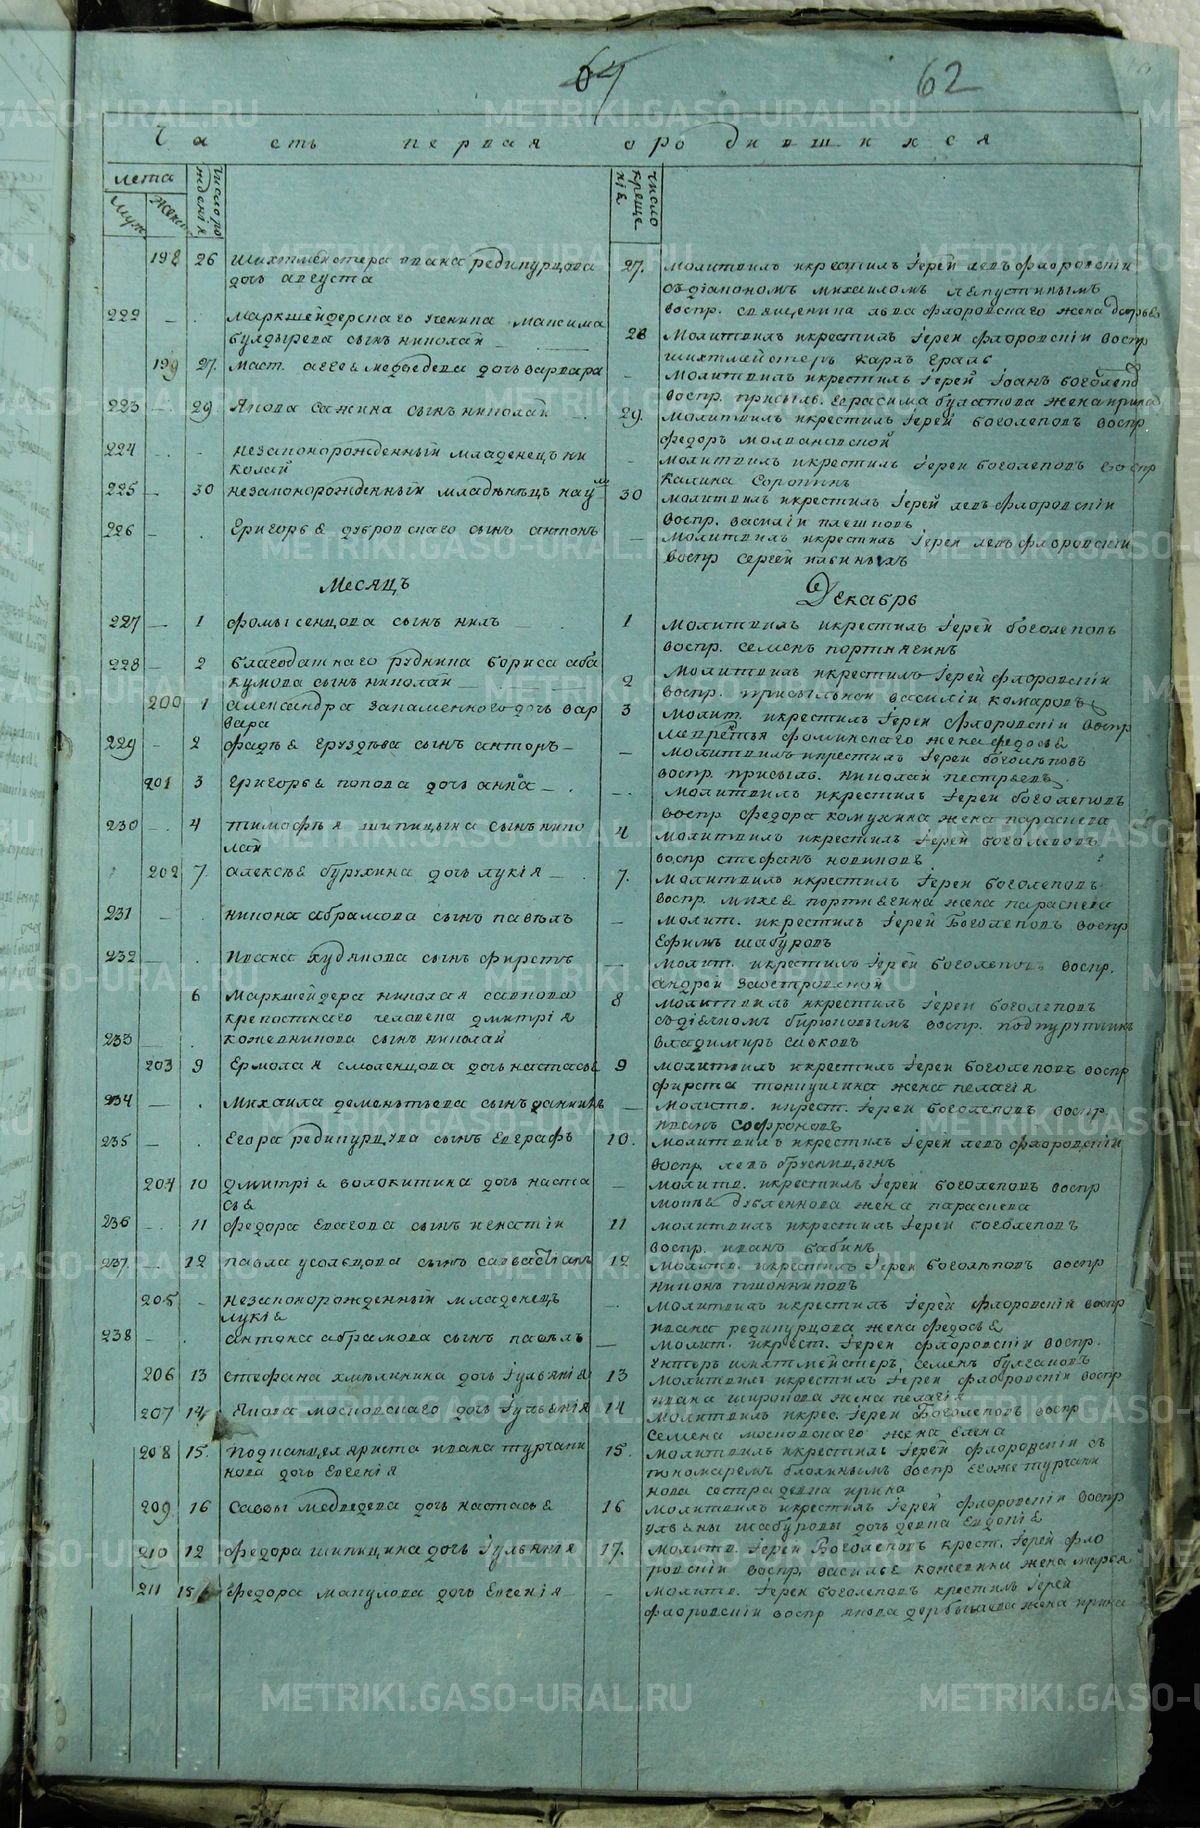 64 62
Часть первая о родившихся
лета
муж.
женс.
число рождения
число крещения
198 26 Шихтмейстера ивана редикурцова 27. молитвилъ икрестилъ Іерей левъ флоровскіи
дочь августа
съдіакономъ михаиломъ
воспр. священика льва флоровскаго жена
222 — . Маркшейдерскаго ученика максима
булдырева сынъ николай — 28 молитвилъ икрестилъ Іерей флоровскіи воспр
шихтмейстеръ карлъ
199 27. маст. алексея медведева дочь варвара – молитвилъ икрестилъ Іерей Іоанъ боголепов
воспр. присыль. Герасима булатова жена ирина
223 — . 29 Якова Сажина сынъ николай 29. молитвилъ икрестилъ Іерей боголеповъ воспр
федоръ
224 — . незаконорожденный младенецъ ни
колай – молитвилъ икрестилъ Іереи боголеповъ воспр
калина Сорокинъ
225 — 30 незаконорожденныи младѣнецъ наумъ 30 молитвилъ икрестилъ Іерей левъ флоровскіи
воспр. василіи плешковъ
226 – . Григорья дубровскаго сынъ антонъ – молитвилъ икрестилъ Іереи левъ флоровскіи
воспр сергей ильиныхъ
Месяцъ Декабрь
227 — 1 фомы сенцова сынъ нилъ — 1 молитвилъ икрестилъ Іерей боголеповъ
воспр. семенъ портнягинъ
228 — 2 благодатнаго рудника бориса аба
кумова сынъ николай — 2 молитвилъ икрестилъ Іерей флоровскіи
воспр. присыльной василіи комаровъ
200 1 александра дочь вар
вара 3 молит. икрестилъ Іереи флоровскіи воспр
жена федосья
229 – 2 фадѣя груздѣва сынъ антонъ – — молитвилъ икрестилъ Іереи боголѣповъ
воспр. присыль. николай пестревъ
201 3 григорья попова дочь анна — . –. молитвилъ икрестилъ Іереи боголеповъ
воспр федора жена параскева
230 – . 4 тимофѣя шипицына сынъ нико
лай 4 молитвилъ икрестилъ Іерей боголеповъ
воспр стефанъ новиковъ
202 7. алексѣя бурухина дочь лукія – . 7. молитвилъ икрестилъ Іереи боголеповъ
воспр. михея портнягина жена параскева
231 — . никона абрамова сынъ павелъ — молит. икрестилъ Іерей Боголеповъ воспр
Ефимъ шабуровъ
232 — . ивана худякова сынъ фирстъ — молит. икрестилъ Іерей боголеповъ воспр.
андрей Заостровской
6 Маркшейдера николая савкова 8 молитвилъ икрестилъ Іереи боголеповъ
крепостнаго человека дмитрія съдіячкомъ бирюковымъ воспр.
233 — . кожевникова сынъ николай владимиръ сивковъ
203 9 Ермолая смоленцова дочь настасья 9 молитвилъ икрестилъ Іереи боголеповъ воспр
фирста жена пелагія
234 — . михаила дементьева сынъ даниилъ — молитв. икрест. Іереи боголеповъ воспр.
иванъ Софроновъ
235 — . Егора редикурцова сынъ Евграфъ 10. молитвилъ икрестилъ Іерей левъ флоровскіи
воспр. левъ брусницынъ
204 10 дмитрія волокитина дочь наста
сья — молитв. икрестилъ Іерей боголеповъ воспр
жена параскева
236 — . 11 федора сынъ игнатіи 11 молитвилъ икрестилъ Іереи боголеповъ
воспр. иванъ бабинъ
237 — 12 павла усольцова сынъ савастіанъ 12 молитв. икрестилъ Іереи боголѣповъ воспр
никонъ
205 – незаконорожденныи младенецъ
лукія –. молитвилъ икрестилъ Іерей флоровскіи воспр
ивана редикурцова жена федосья
238 – . антона абрамова сынъ павелъ — молит. икрест. Іереи флоровскіи воспр.
унтеръ шихтмейстеръ семенъ булгаковъ
206 13 Стефана хмѣлинина дочь Іульянія 13 молитвилъ икрестилъ Іерей флоровскіи воспр
ивана широкова жена пелагія
207 14 Якова московскаго дочь Іульенія 14 молитвилъ икрес. Іереи Боголеповъ воспр
Семена московскаго жена Елена
208 15. Подканцеляриста ивана турчани 15. молитвилъ икрестилъ Іерей флоровскіи съ
нова дочь Евгенія пономаремъ воспр егоже турчани
нова сестра девка ирина
209 16 Саввы медведева дочь настасья 16 молитвилъ икрестилъ Іерей флоровскіи воспр
ульяны шабуровы дочь девка Евдокія
210 12 федора шипицина дочь Іульянія 17. молитв. Іереи Боголеповъ крест. Іереи фло
ровскіи воспр. василья кожевина жена марья
211 15 федора макулова дочь Евгенія — – молитв. Іереи боголеповъ крестилъ Іереи
флоровскіи воспр якова жена ирина